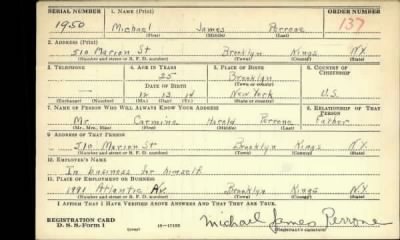 SERIAL NUMBER 1. NAME (Print) ORDER NUMBER
1950 Michael James Perrone 137
(First) (Middle) (Last)
2. ADDRESS (Print)
510 Marion St Brooklyn Kings N.Y.
(Number and street or R. F. D. number) (Town) (County) (State)
3. TELEPHONE 4. AGE IN YEARS 5. PLACE OF BIRTH 6. COUNTRY OF CITIZENSHIP
25 Brooklyn
DATE OF BIRTH (Town or county)
12 13 14 New York U.S.
(Exchange) (Number) (Mo.) (Day) (Yr.) (State or country)
7. NAME OF PERSON WHO WILL ALWAYS KNOW YOUR ADDRESS 8. RELATIONSHIP OF THAT PERSON
Mr. Carmine Harold Perrone Father
(Mr., Mrs., Miss) (First) (Middle) (Last)
9. ADDRESS OF THAT PERSON
510 Marion St Brooklyn Kings N.Y.
(Number and street or R. F. D. number) (Town) (County) (State)
10. EMPLOYER'S NAME
In business for himself
11. PLACE OF EMPLOYMENT OR BUSINESS
1991 Atlantic Av. Brooklyn Kings N.Y.
(Number and street or R. F. D. number) (Town) (County) (State)
I AFFIRM THAT I HAVE VERIFIED ABOVE ANSWERS AND THAT THEY ARE TRUE.
REGISTRATION CARD
D. S. S. Form 1 (over) Michael James Perrone
(Registrant's signature)